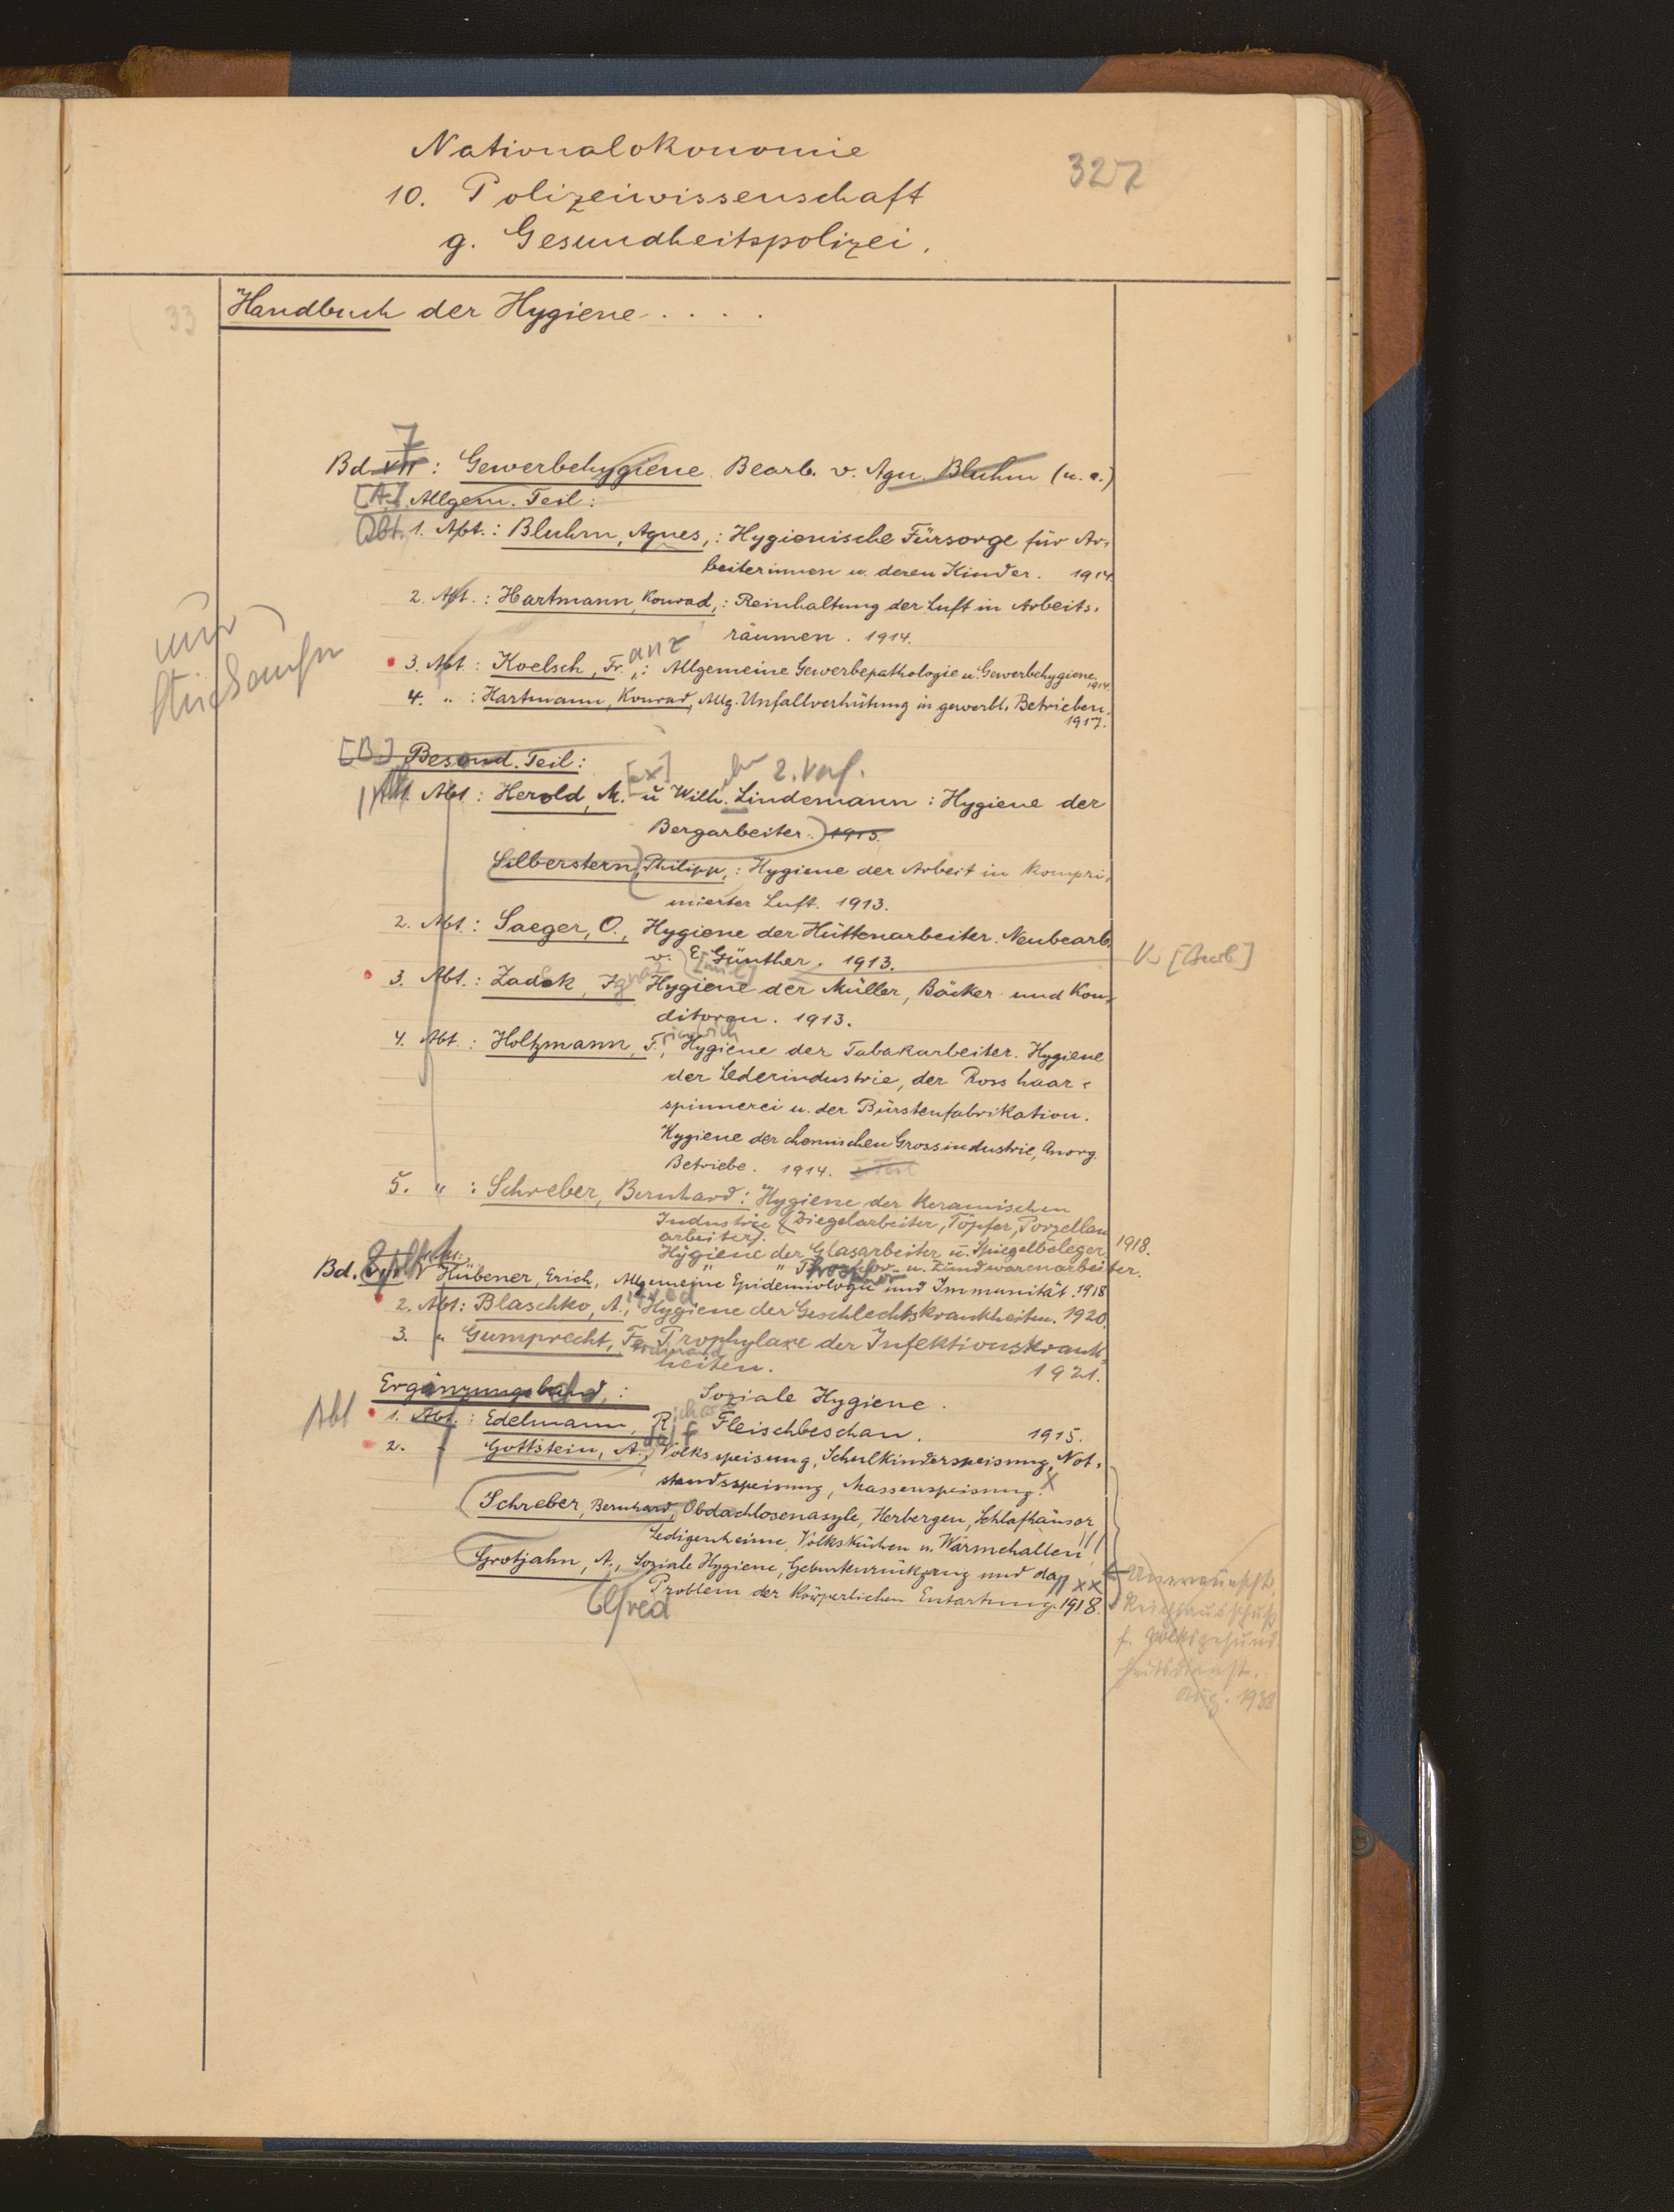 Nationalökonomie
327
10. Polizeiwissenschaft
g. Gesundheitspolizei.
33
Handbuch der Hygiene . . . .
7
Bd. VII : Gewerbehygiene. Bearb. v. Agn. Bluhm (u. a.)
[A.] Allgem. Teil:
Abt. 1. Abt. : Bluhm, Agnes, : Hygienische Fürsorge für Ar-
beiterinnen u. deren Kinder. 1914
2. Abt. : Hartmann, Konrad, : Reinhaltung der Luft in Arbeits-
räumen. 1914.
nur
3. Abt : Koelsch, Fr.anz, : Allgemeine Gewerbepathologie u. Gewerbehygiene. 1914.
4. " : Hartmann, Konrad, Allg. Unfallverhütung in gewerbl. Betrieben.
1917.
[B] Besond. Teil:
[ax] 2. Verf.
1. Abt : Herold, M. u Wilh. Lindemann : Hygiene der
Bergarbeiter. 1913.
Silberstern, Philipp, : Hygiene der Arbeit in kompri-
mierter Luft. 1913.
2. Abt. : Saeger, O., Hygiene der Hüttenarbeiter. Neubearb.
v. E. Günther. 1913.
V.
[Emil]
3. Abt. : Zadek, Ignaz Hygiene der Müller, Bäcker und Kon-
ditoren. 1913.
4. Abt. : Holtzmann, F.riedrich, Hygiene der Tabakarbeiter. Hygiene
der Lederindustrie, der Rosshaar-
spinnerei u. der Bürstenfabrikation.
Hygiene der chemischen Grossindustrie, Anorg.
Betriebe. 1914.
5. " : Schreber, Bernhard : Hygiene der Keramischen
Industrie (Ziegelarbeiter, Töpfer, Porzellan
arbeiter).
Hygiene der Glasarbeiter u. Spiegelbeleger. 1918.
" " Phosphor- u. Zündwarenarbeiter.
Bd. VIII 8 Hübener, Erich, Allgemeine Epidemiologie und Immunität. 1918
2. Abt : Blaschko, A.lfred, Hygiene der Geschlechtskrankheiten. 1920.
3. " Gumprecht, Ferdinand Prophylaxe der Infektionskrank-
heiten. 1921.
Ergänzungsband : Soziale Hygiene.
Abt 1. Abt. : Edelmann, Richard Fleischbeschau. 1915.
2. " Gottstein, Adolf, Volksspeisung, Schulkinderspeisung, Not-
standsspeisung, Massenspeisung. X
Schreber, Bernhard, Obdachlosenasyle, Herbergen, Schlafhäuser
Ledigenheime, Volksküchen u. Wärmehallen !!
Grotjahn, A., Soziale Hygiene, Geburtenrückgang und das XX
Problem der körperlichen Entartung. 1918.
Alfred
Unerwünscht.
Reichsausschuß
f. Volksgesund-
heitsdienst.
Aug. 1938